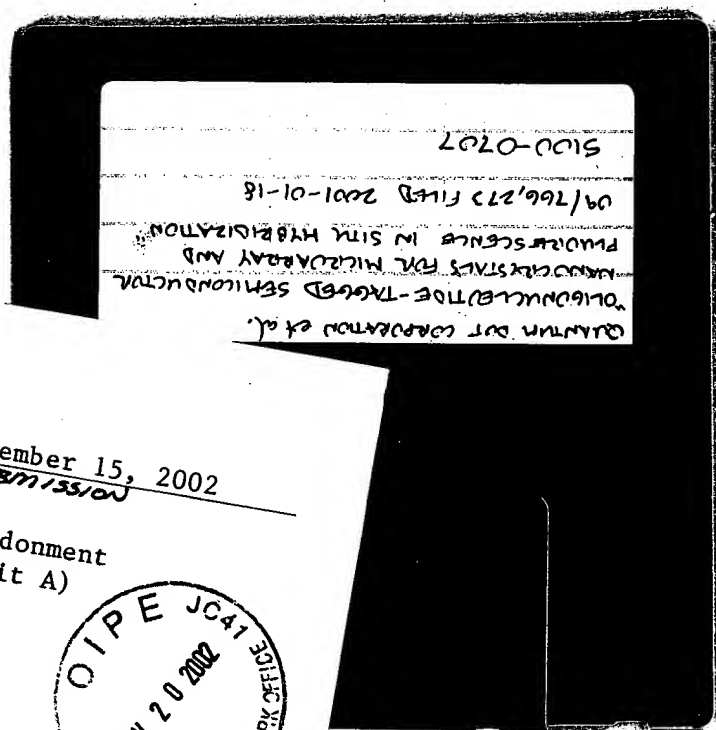 QUANTUM DOT CORPORATION et al.
"OLIGONUCLEOTIDE-TAGGED SEMICONDUCTOR
NANOCRYSTALS FOR MICROARRAY AND
FLUORESCENCE IN SITU HYBRIDIZATION"
09/766,273 FILED 2001-01-18
5100-0707
ember 15, 2002
SMISSION
donment
it A)
OIPE JC41
2 0 2002